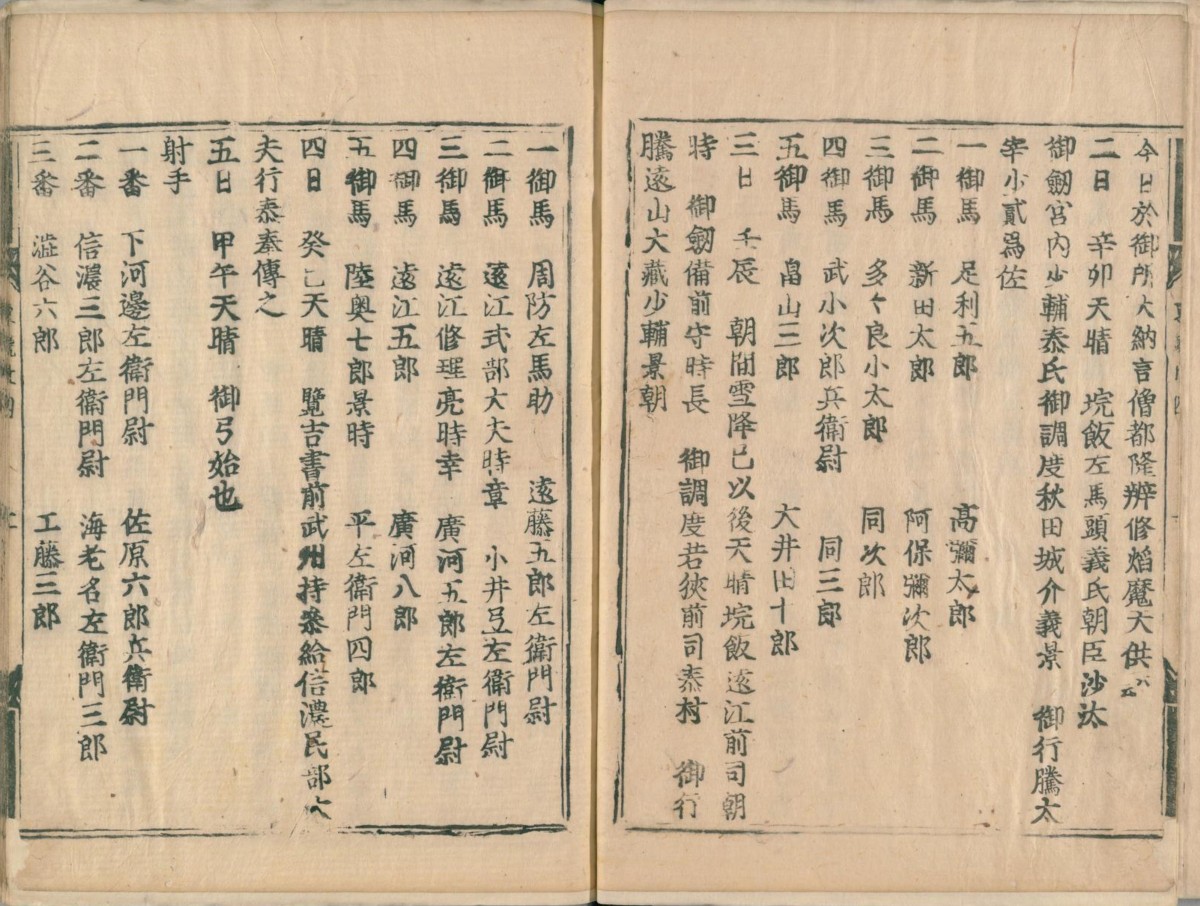 今日於御所大納言僧都隆辨修焰魔天供云云
二日　辛卯天晴　垸飯左馬頭義氏朝臣沙汰
御劔宮内少輔泰氏御調度秋田城介義景　御行騰太
宰少貳爲佐
一御馬　足利五郎　高彌太郎
二御馬　新田太郎　阿保彌次郎
三御馬　多々良小太郎　同次郎
四御馬　武小次郎兵衛尉　同三郎
五御馬　畠山三郎　大井田十郎
三日　壬辰　朝間雪降巳以後天晴垸飯遠江前司朝
時　御劔備前守時長　御調度若狹前司泰村　御行
騰遠山大藏少輔景朝
一御馬　周防左馬助　遠藤五郎左衛門尉
二御馬　遠江式部大夫時章　小井弖左衛門尉
三御馬　遠江修理亮時幸　廣河五郎左衛門尉
四御馬　遠江五郎　廣河八郎
五御馬　陸奥七郎景時　平左衛門四郎
四日　癸巳天晴　覽吉書前武州持參給信濃民部大
夫行泰奉傳之
五日　甲午天晴　御弓始也
射手
一番　下河邊左衛門尉　佐原六郎兵衛尉
二番　信濃三郎左衛門尉　海老名左衛門三郎
三番　澁谷六郎　工藤三郎